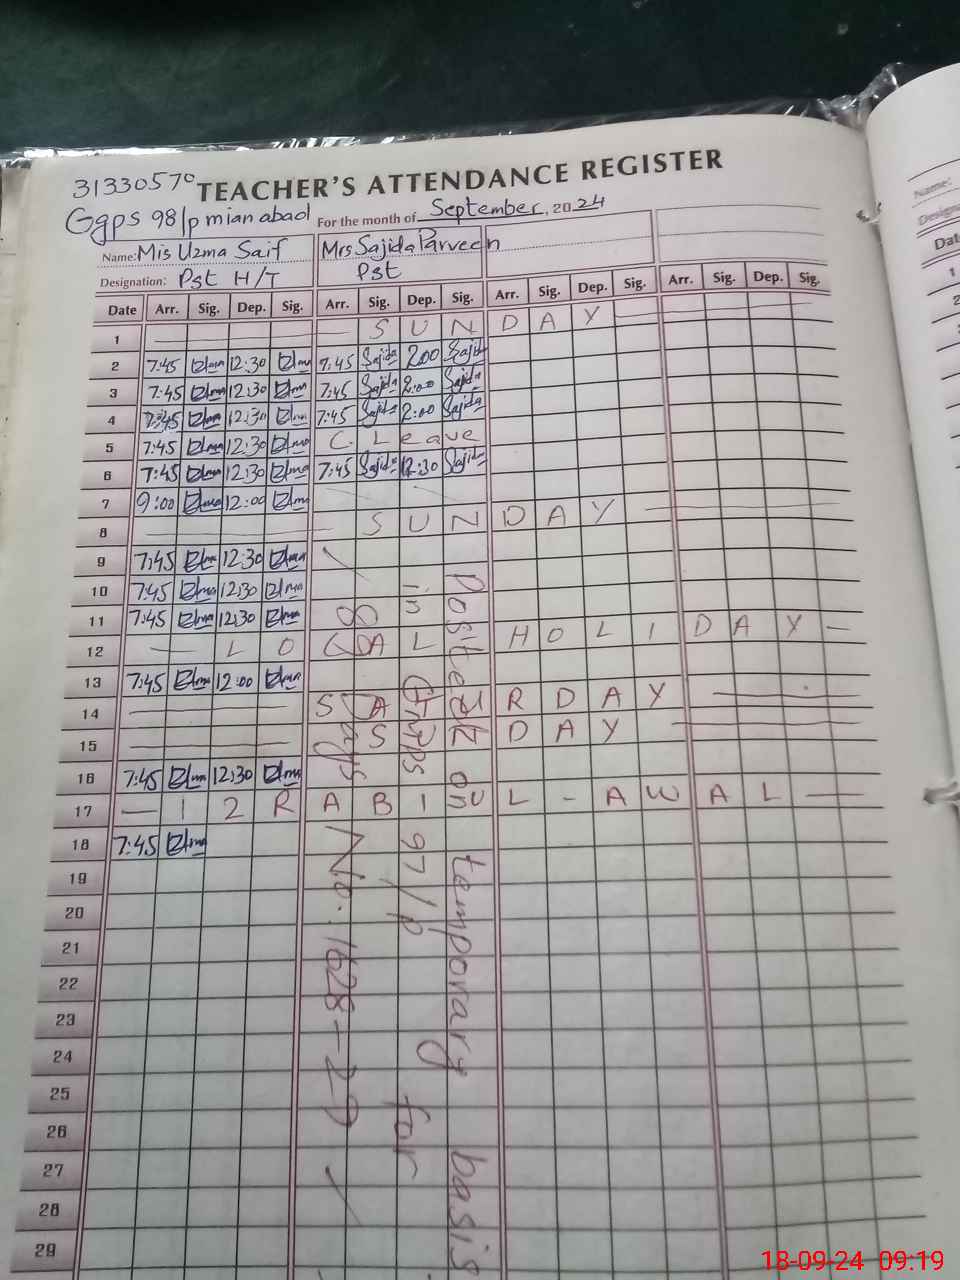 31330570 TEACHER'S ATTENDANCE REGISTER
Ggps 98/p mian abad For the month of September, 2024
Name: Mis Uzma Saif Mrs Sajida Parveen
Designation: Pst H/T Pst
Date Arr. Sig. Dep. Sig. Arr. Sig. Dep. Sig. Arr. Sig. Dep. Sig. Arr. Sig. Dep. Sig.
1 SUNDAY
2 7:45 12:30 7:45 Sajida 2:00 Sajida
3 7:45 12:30 7:45 Sajida 2:00 Sajida
4 7:45 12:30 7:45 Sajida 2:00 Sajida
5 7:45 12:30 C. Leave
6 7:45 12:30 7:45 Sajida 12:30 Sajida
7 9:00 12:00
8 SUNDAY
9 7:45 12:30
10 7:45 12:30
11 7:45 12:30
12 LOCAL HOLIDAY
13 7:45 12:00
14 SATURDAY
15 SUNDAY
16 7:45 12:30
17 12 RABI UL-AWAL
18 7:45
19
20
21
22
23
24
25
26
27
28
29
Posted on temporary basis
in GGPS 97/p for
Days No. 1628-29
Name:
Date
1
2
3
4
5
6
7
8
9
10
11
12
18-09-24 09:19